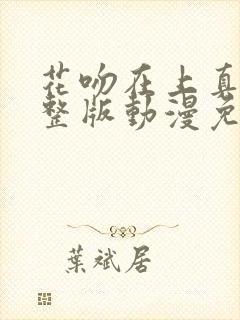 花吻在上真
整版動漫免
葉斌居